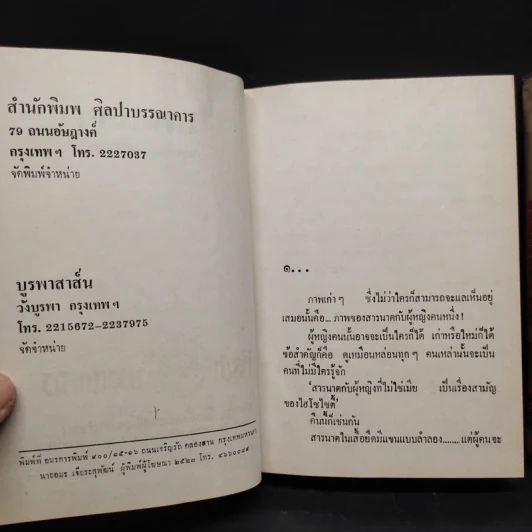 สำนักพิมพ์ ศิลปาบรรณาคาร
79 ถนนอัษฎางค์
กรุงเทพฯ โทร. 2227037
จัดพิมพ์จำหน่าย
บูรพาสาส์น
วังบูรพา กรุงเทพฯ
โทร. 2215672–2237975
จัดจำหน่าย
พิมพ์ที่ อมรการพิมพ์ ๙๐๐/๑๕-๑๖ ถนนเจริญรัถ คลองสาน กรุงเทพมหานคร
นายอมร ผู้พิมพ์ผู้โฆษณา ๒๕๒๓ โทร.
๑...
ภาพเก่าๆ ซึ่งไม่ว่าใครก็สามารถจะแลเห็นอยู่
เสมอนั้นคือ... ภาพของสารนาคกับผู้หญิงคนหนึ่ง !
ผู้หญิงคนนั้นอาจจะเป็นใครก็ได้ เก่าหรือใหม่ก็ได้
ข้อสำคัญก็คือ ดูเหมือนหล่อนทุกๆ คนเหล่านั้นจะเป็น
คนที่ไม่มีใครรู้จัก
'สารนาคกับผู้หญิงที่ไม่ใช่เมีย เป็นเรื่องสามัญ
ของไฮโซไซตี้'
คืนนี้ก็เช่นกัน
สารนาคในเสื้อยืดมีแขนแบบลำลอง.......แต่ผู้คนจะ